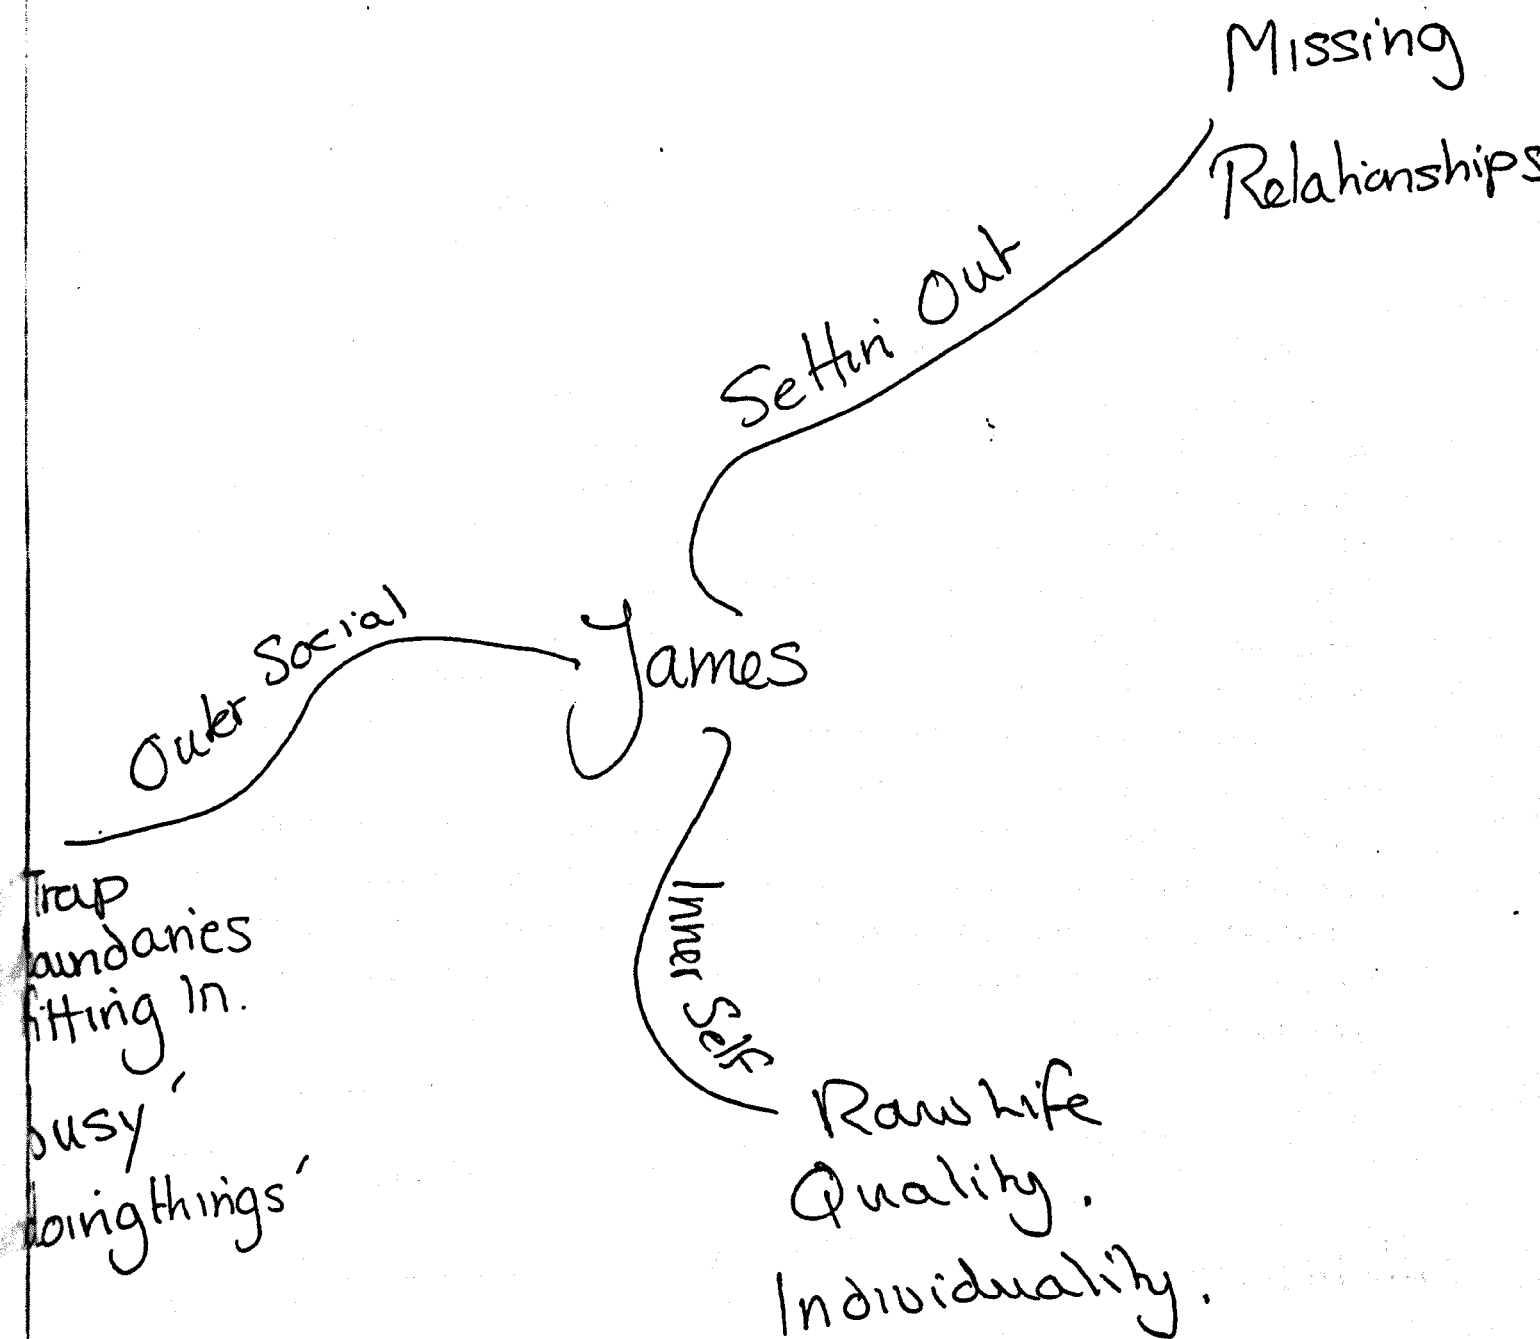 Missing
Relationships
Settin Out
James
Outer Social
Trap
oundaries
fitting In.
busy'
doing things'
Inner Self
Raw Life
Quality.
Individuality.